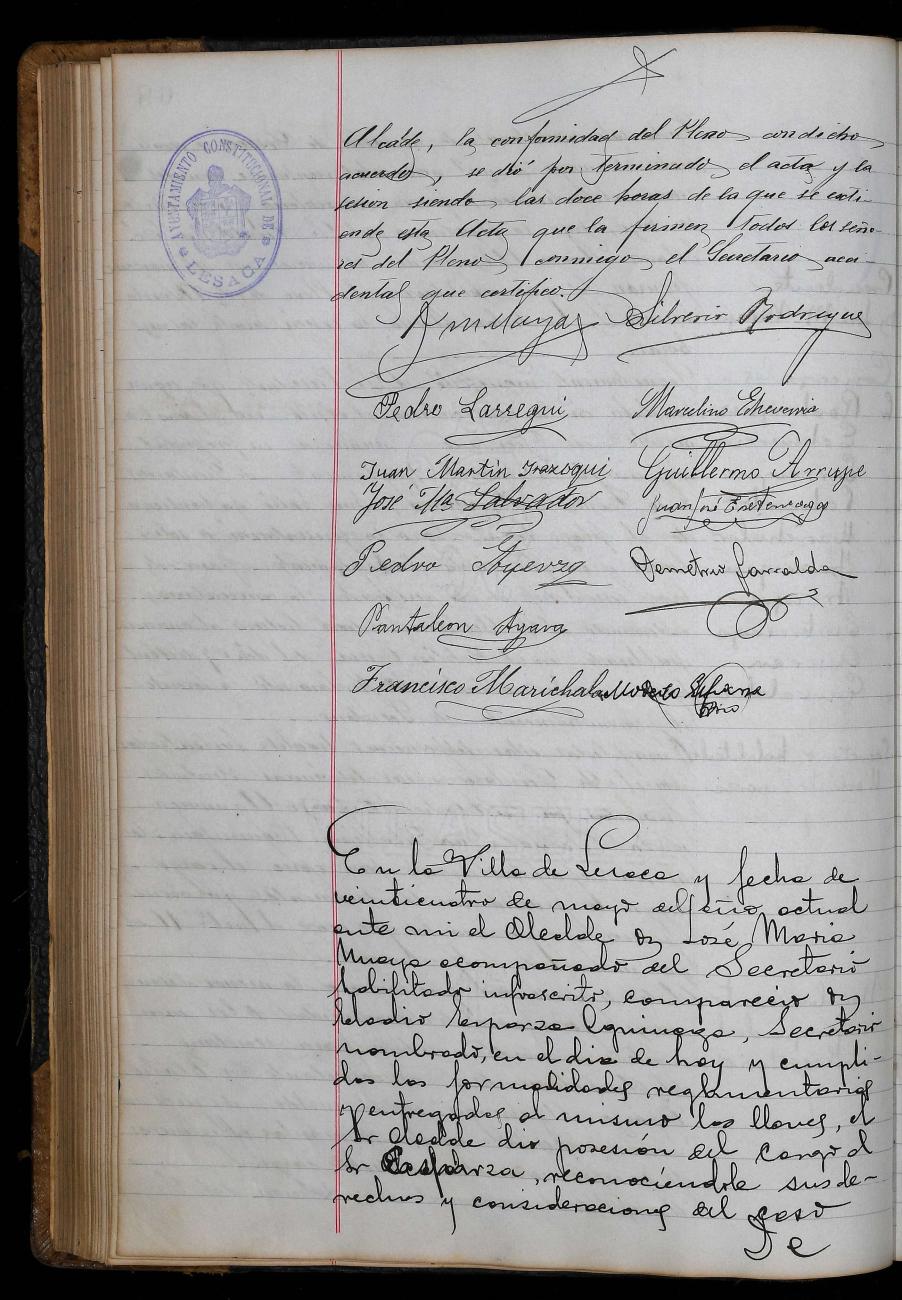 AYUNTAMIENTO CONSTITUCIONAL DE
LESACA
Alcalde, la conformidad del Pleno con dicho
acuerdo, se dió por terminado el acta y la
sesion siendo las doce horas de la que se exti-
ende esta Acta que la firmen todos los seño-
res del Pleno conmigo el Secretario acci-
dental que certifico.
Silverio Rodriguez
Pedro Larregui Marcelino Echeverria
Juan Martin Irazoqui Guillermo Arrupe
José Mª Salvador Juan José
Pedro Demetrio Garralda
Pantaleon
Francisco Marichalar
En la Villa de Lesaca y fecha de
veinticuatro de mayo del año actual
ante mi el Alcalde Dn José Maria
Amaya acompañado del Secretario
habilitado infrascrito, compareció Dn
Eladio Esparza Eguinaga, Secretario
nombrado, en el dia de hoy y cumpli-
das las formalidades reglamentarias
y entregadas al mismo las llaves, el
Sr Alcalde dio posesión del cargo al
Sr Esparza, reconociéndole sus de-
rechos y consideraciones del caso
De